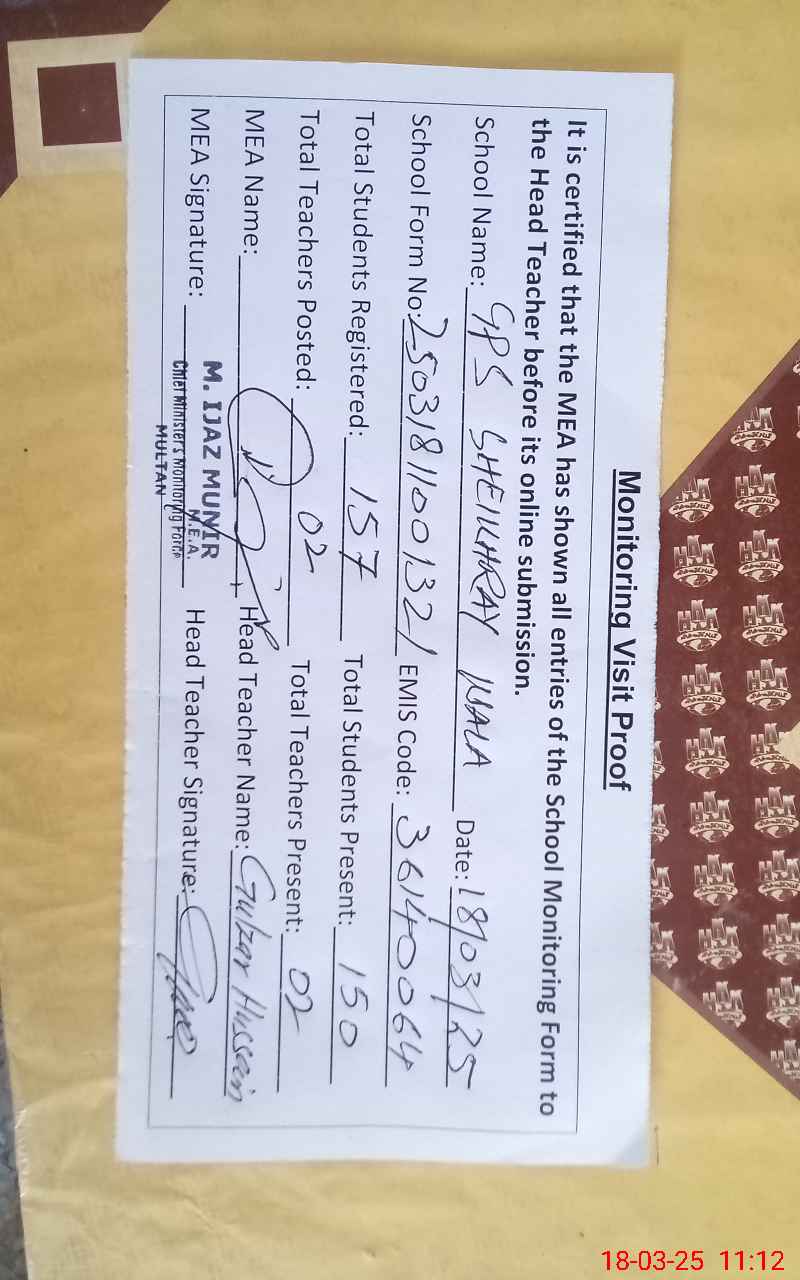 Monitoring Visit Proof
It is certified that the MEA has shown all entries of the School Monitoring Form to
the Head Teacher before its online submission.
School Name: GPS SHEIKHRAY WALA Date: 18/03/25
School Form No: 25031811001321 EMIS Code: 36140064
Total Students Registered: 157 Total Students Present: 150
Total Teachers Posted: 02 Total Teachers Present: 02
MEA Name: Head Teacher Name: Gulzar Hussain
MEA Signature: Head Teacher Signature:
M. IJAZ MUNIR
M.E.A.
Chief Minister's Monitoring Force
MULTAN
18-03-25 11:12